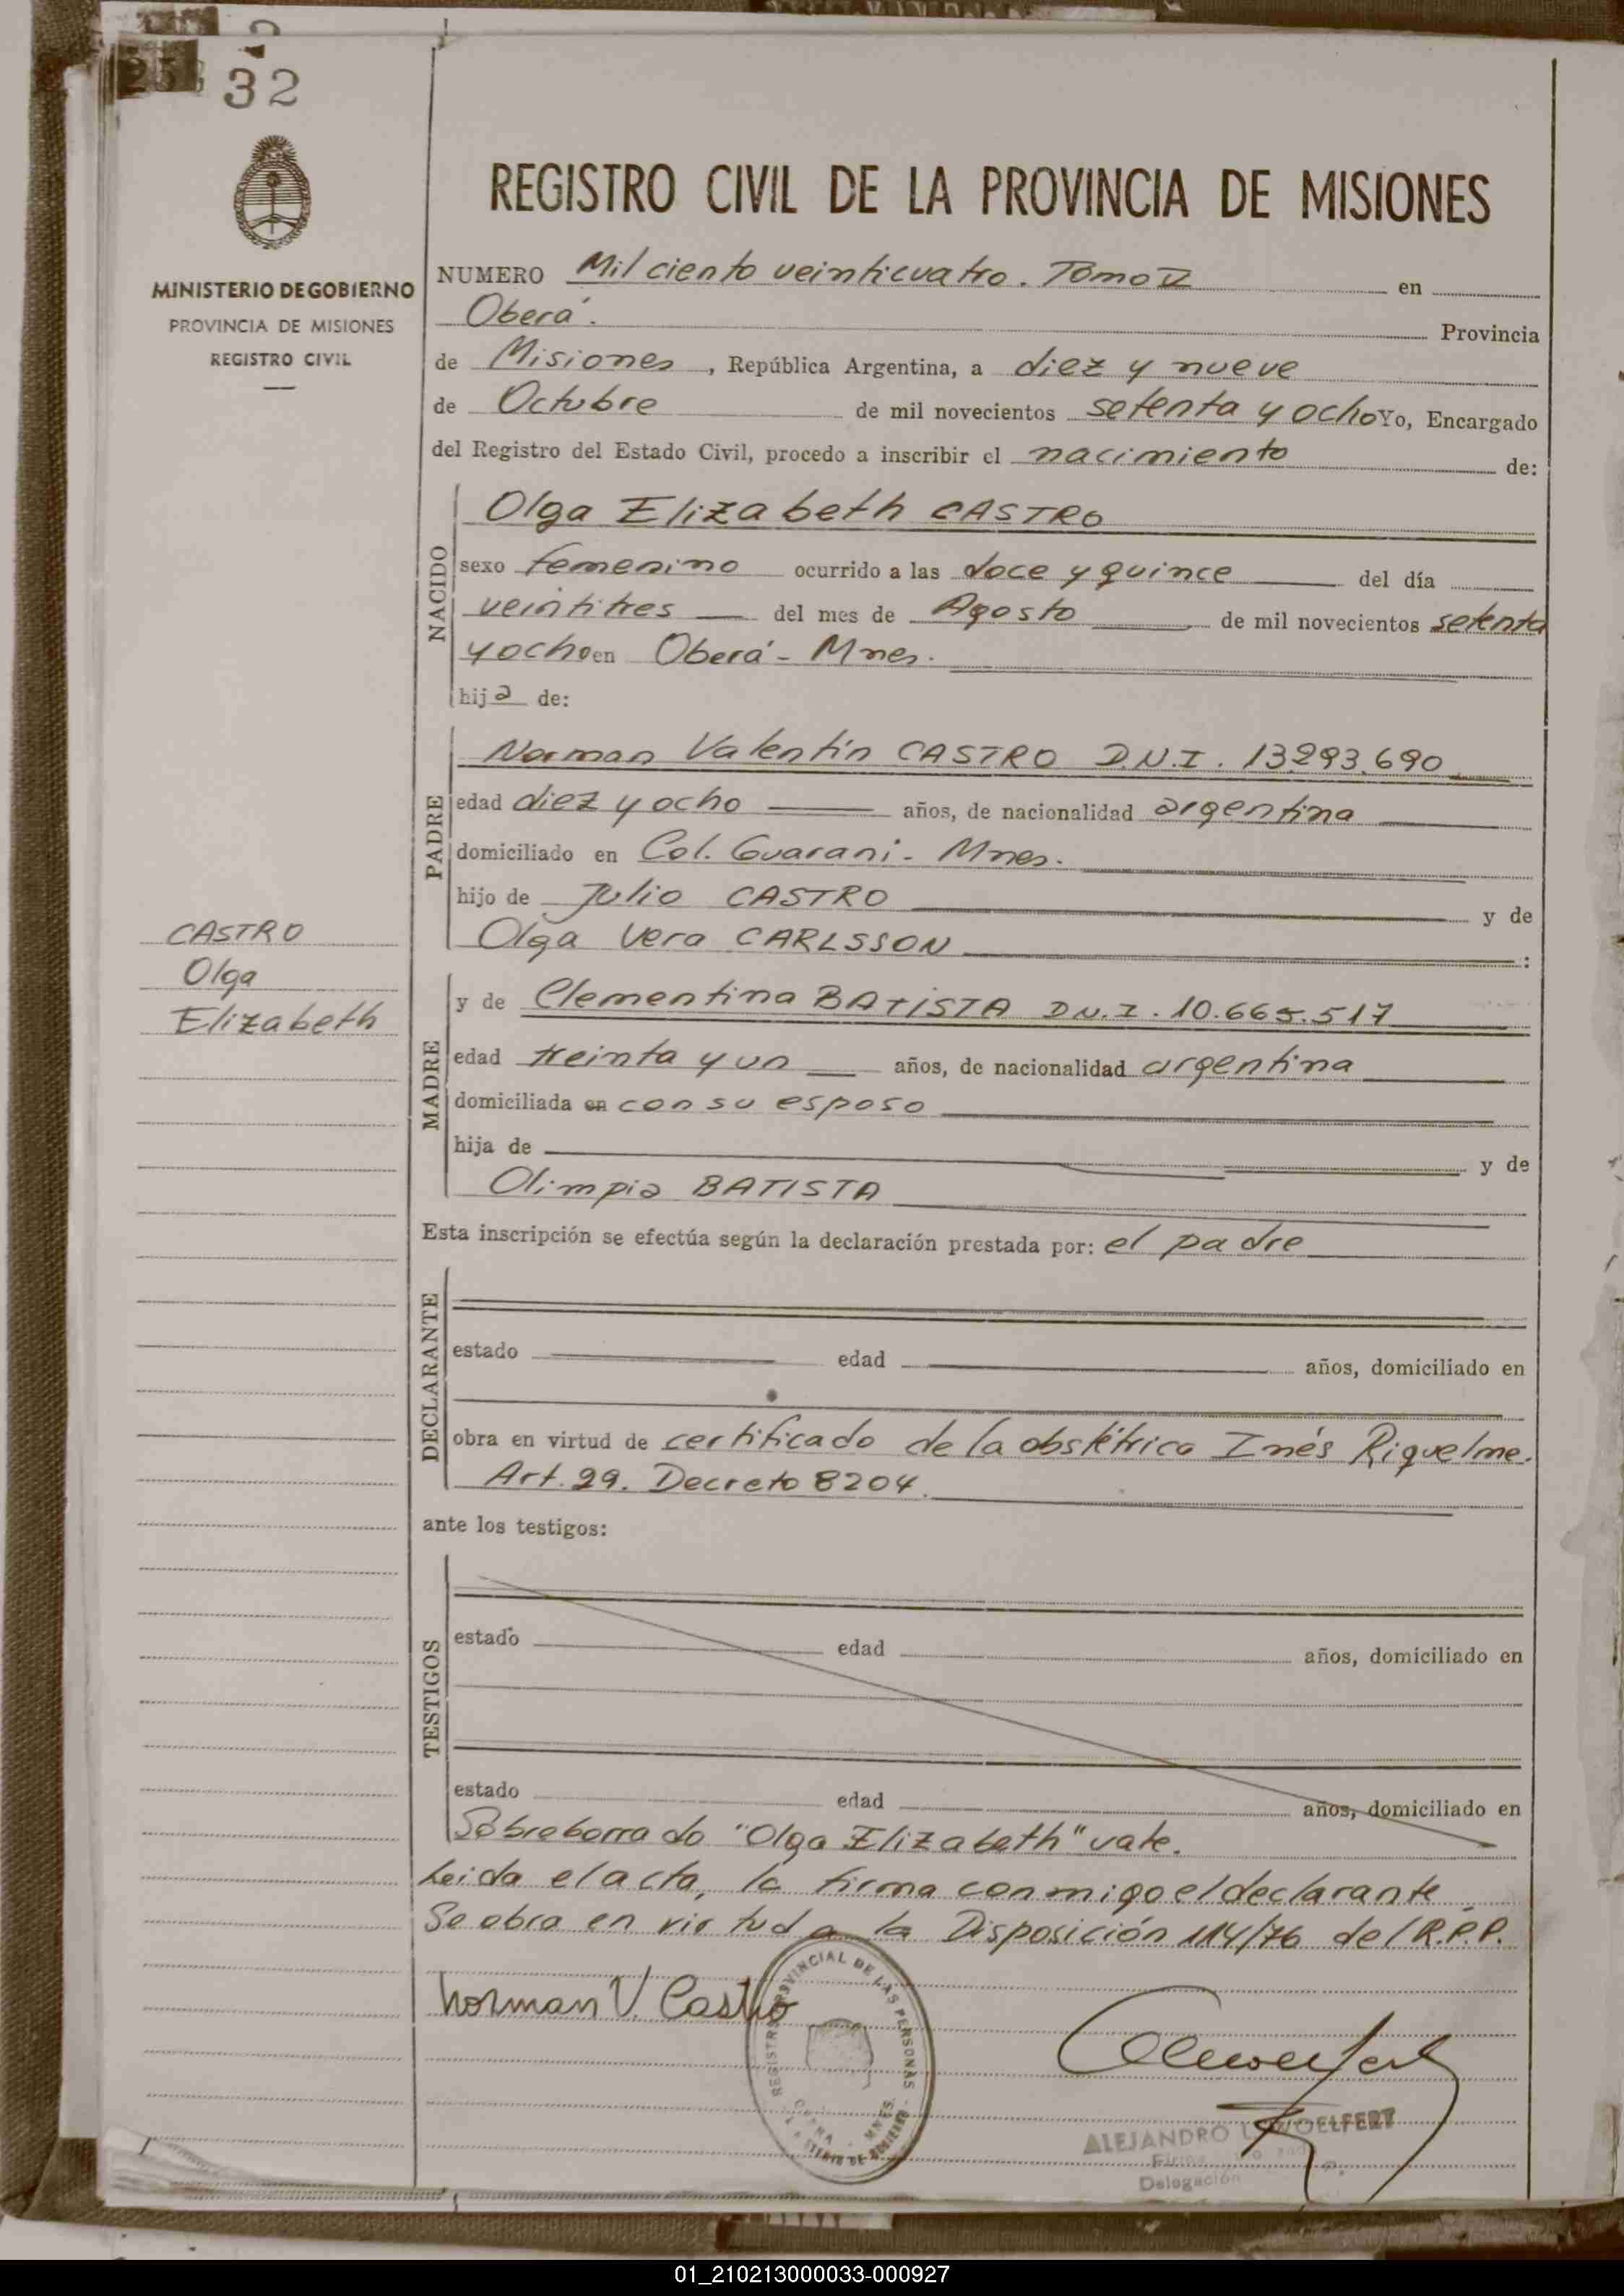 32
MINISTERIO DE GOBIERNO
PROVINCIA DE MISIONES
REGISTRO CIVIL
CASTRO
Olga
Elizabeth
REGISTRO CIVIL DE LA PROVINCIA DE MISIONES
NUMERO Mil ciento veinticuatro. Tomo en
Oberá. Provincia
de Misiones, República Argentina, a diez y nueve
de Octubre de mil novecientos setenta y ocho Yo, Encargado
del Registro del Estado Civil, procedo a inscribir el nacimiento de:
NACIDO
Olga Elizabeth CASTRO
sexo femenino ocurrido a las doce y quince del día
veintitres del mes de Agosto de mil novecientos setenta
y ocho en Oberá - Mnes.
hija de:
PADRE
Norman Valentín CASTRO D.N.I. 13.293.690
edad diez y ocho años, de nacionalidad argentina
domiciliado en Col. Guarani - Mnes.
hijo de Julio CASTRO y de
Olga Vera CARLSSON :
MADRE
y de Clementina BATISTA D.N.I. 10.665.517
edad treinta y un años, de nacionalidad argentina
domiciliada en con su esposo
hija de y de
Olimpia BATISTA
Esta inscripción se efectúa según la declaración prestada por: el padre
DECLARANTE
estado edad años, domiciliado en
obra en virtud de certificado de la obstétrica Inés Riquelme.
Art. 29. Decreto 8204.
ante los testigos:
TESTIGOS
estado edad años, domiciliado en
estado edad años, domiciliado en
Sobreborrado "Olga Elizabeth" vale.
Leida el acta, la firma conmigo el declarante
Se obra en virtud a la Disposición 114/76 del R.P.P.
Norman V. Castro
REGISTRO PROVINCIAL DE LAS PERSONAS
MNES.
ALEJANDRO L. WOELFERT
Delegación
01_210213000033-000927